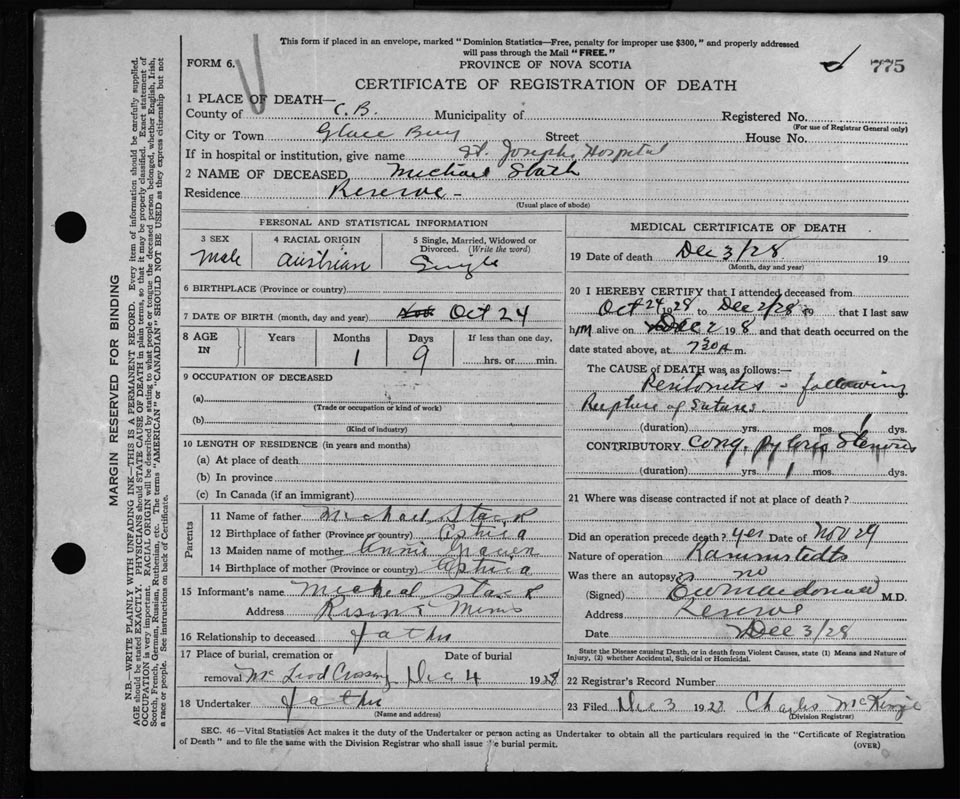 This form if placed in an envelope, marked "Dominion Statistics—Free, penalty for improper use $300," and properly addressed
will pass through the Mail "FREE."
FORM 6.
PROVINCE OF NOVA SCOTIA
775
CERTIFICATE OF REGISTRATION OF DEATH
1 PLACE OF DEATH—
County of C.B. Municipality of Registered No.
(For use of Registrar General only)
City or Town Glace Bay Street House No.
If in hospital or institution, give name St. Josephs Hospital
2 NAME OF DECEASED Michael
Residence Reserve -
(Usual place of abode)
PERSONAL AND STATISTICAL INFORMATION
3 SEX
4 RACIAL ORIGIN
5 Single, Married, Widowed or Divorced. (Write the word)
Male Austrian Single
6 BIRTHPLACE (Province or country)
7 DATE OF BIRTH (month, day and year) Oct 24
8 AGE IN
Years Months Days If less than one day,
1 9 hrs. or min.
9 OCCUPATION OF DECEASED
(a)
(Trade or occupation or kind of work)
(b)
(Kind of industry)
10 LENGTH OF RESIDENCE (in years and months)
(a) At place of death
(b) In province
(c) In Canada (if an immigrant)
Parents
11 Name of father Michael
12 Birthplace of father (Province or country)
13 Maiden name of mother Annie
14 Birthplace of mother (Province or country)
15 Informant's name Micheal
Address Mines
16 Relationship to deceased father
17 Place of burial, cremation or Date of burial
removal Mc Leod Crossing Dec 4 1928
18 Undertaker father
(Name and address)
MEDICAL CERTIFICATE OF DEATH
19 Date of death Dec 3/28 19
(Month, day and year)
20 I HEREBY CERTIFY that I attended deceased from
Oct 24 1928 to Dec 2/28 19 that I last saw
him alive on Dec 2 1928 and that death occurred on the
date stated above, at 7 30 A m.
The CAUSE OF DEATH was as follows:—
Peritonitis - following
Rupture of Sutures.
(duration) yrs. mos. 1 dys.
CONTRIBUTORY Cong. Pyloric Stenosis
(duration) yrs. 1 mos. dys.
21 Where was disease contracted if not at place of death?
Did an operation precede death? yes Date of Nov 29
Nature of operation Rammstedts
Was there an autopsy? no
(Signed) Macdonald M.D.
Address Reserve
Date Dec 3/28
State the Disease causing Death, or in death from Violent Causes, state (1) Means and Nature of
Injury, (2) whether Accidental, Suicidal or Homicidal.
22 Registrar's Record Number
23 Filed Dec 3 1928 Charles McKinzie
(Division Registrar)
SEC. 46—Vital Statistics Act makes it the duty of the Undertaker or person acting as Undertaker to obtain all the particulars required in the "Certificate of Registration
of Death" and to file the same with the Division Registrar who shall issue the burial permit. (OVER)
MARGIN RESERVED FOR BINDING
N.B.—WRITE PLAINLY WITH UNFADING INK—THIS IS A PERMANENT RECORD. Every item of information should be carefully supplied.
AGE should be stated EXACTLY. PHYSICIANS should STATE CAUSE OF DEATH in plain terms, so that it may be properly classified. Exact statement of
OCCUPATION is very important. RACIAL ORIGIN will be described by stating to what people or tongue the deceased person belonged, whether English, Irish,
Scotch, French, German, Russian, Ruthenian, etc. The terms "AMERICAN" or "CANADIAN" SHOULD NOT BE USED as they express citizenship but not
a race or people. See instructions on back of Certificate.